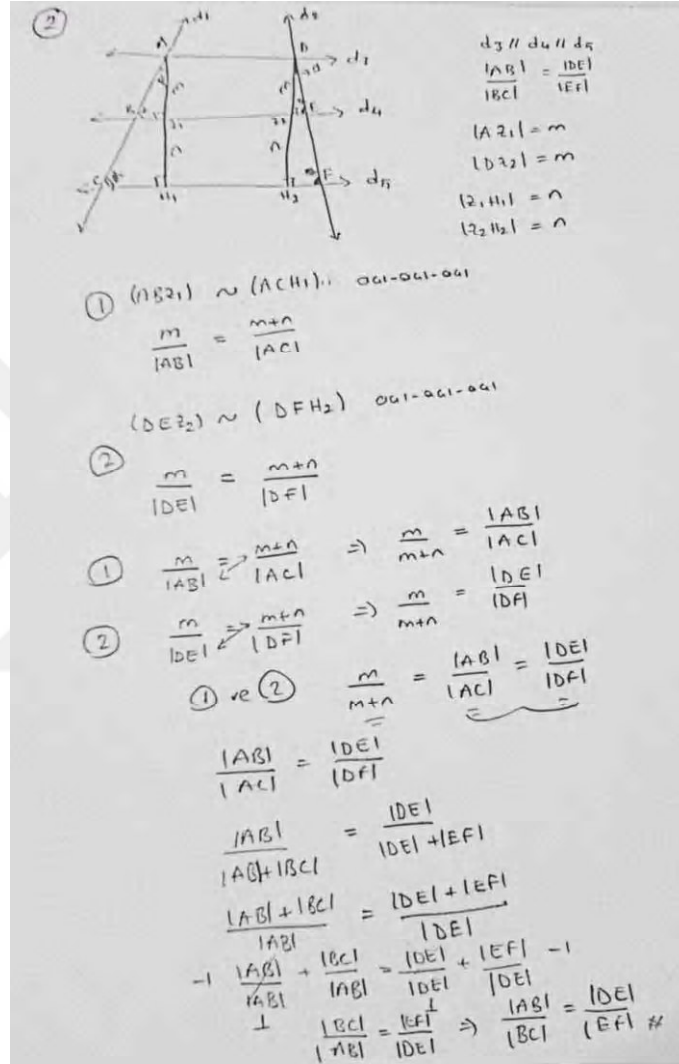 2
d1 d2
A D d3
B E d4
C F d5
H1 H2
d3 // d4 // d5
|AB| / |BC| = |DE| / |EF|
|AZ1| = m
|DZ2| = m
|Z1H1| = n
|Z2H2| = n
① (ABZ1) ~ (ACH1).. aai-aai-aai
m / |AB| = m+n / |AC|
(DEZ2) ~ (DFH2) aai-aai-aai
② m / |DE| = m+n / |DF|
① m / |AB| = m+n / |AC| => m / m+n = |AB| / |AC|
② m / |DE| = m+n / |DF| => m / m+n = |DE| / |DF|
① ve ② m / m+n = |AB| / |AC| = |DE| / |DF|
|AB| / |AC| = |DE| / |DF|
|AB| / |AB|+|BC| = |DE| / |DE|+|EF|
|AB|+|BC| / |AB| = |DE|+|EF| / |DE|
-1 |AB| / |AB| + |BC| / |AB| = |DE| / |DE| + |EF| / |DE| -1
1 1
|BC| / |AB| = |EF| / |DE| => |AB| / |BC| = |DE| / |EF| #